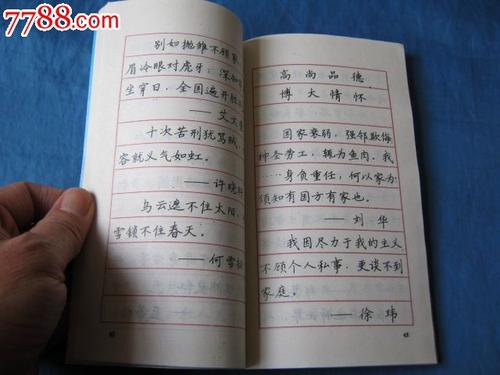 7788.com
别如抛雏不顾家
眉冷眼对虎牙；深知
生宵日，全国遍开胜
——艾文
十次苦刑犹骂贼，
容就义气如虹。
——许晓轩
乌云遮不住太阳，
雪锁不住春天。
——何雪松
高尚品德
博大情怀
国家衰弱，强邻欺侮
神圣劳工，辄为鱼肉。我
……身负重任，何以家为
须知有国方有家也。
——刘华
我因尽力于我的主义
不顾个人私事，更谈不到
家庭。
——徐玮